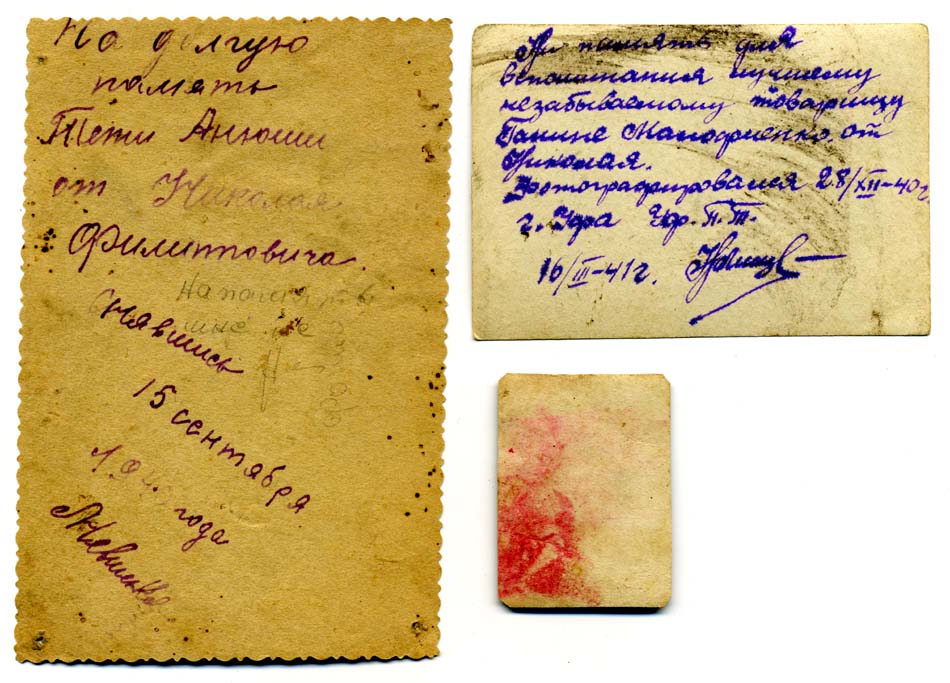 На долгую
память
Тети Анюши
от Николая
Филипповича.
Снявшись
15 сентября
года
На память для
вспоминания лучшему
незабываемому товарищу
Галине от
Николая.
Фотографировался 28/XII-40г.
г. Уфа П.Т.
16/III-41г.